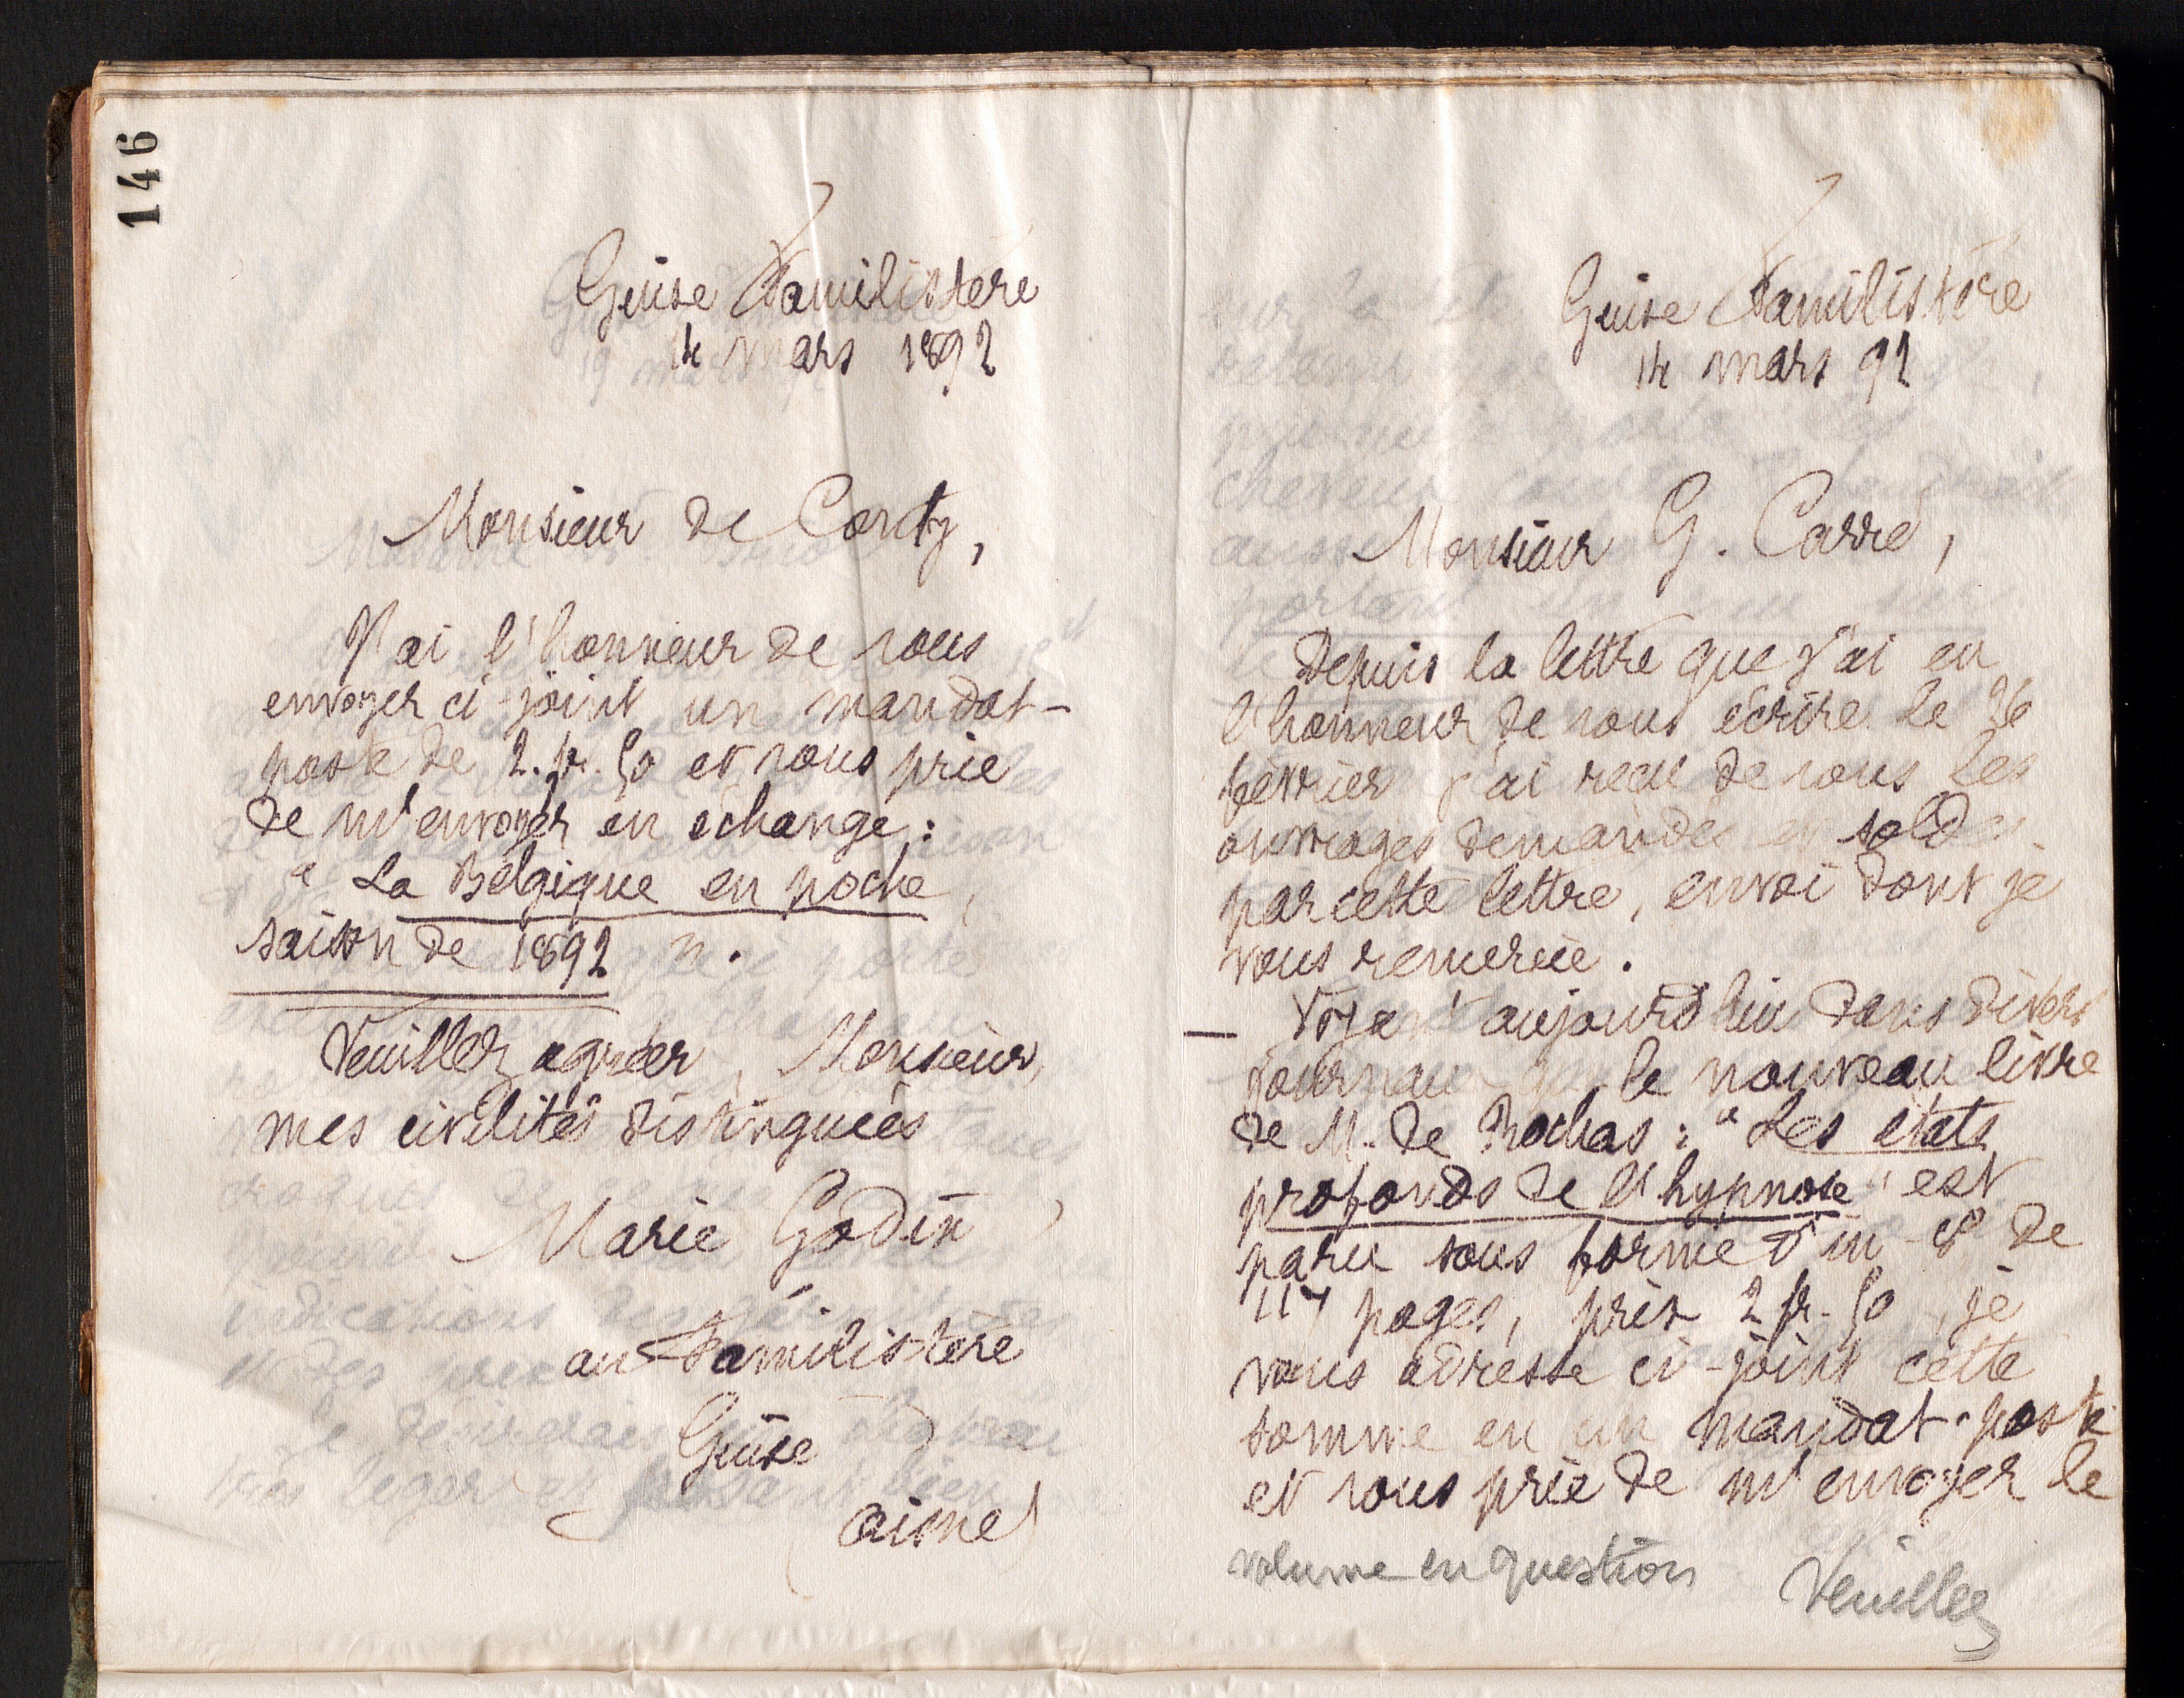 146
Guise Familistère
14 mars 1892
Monsieur de Conty,
J'ai l'honneur de vous
envoyer ci-joint un mandat-
poste de 2.fr.50 et vous prie
de m'envoyer en échange :
" La Belgique en poche,
saison de 1892 ".
Veuillez agréer, Monsieur,
mes civilités distinguées
Marie Godin
au Familistère
Guise
(Aisne)
Guise Familistère
14 mars 92
Monsieur G. Carré,
Depuis la lettre que j'ai eu
l'honneur de vous écrire le 26
février j'ai reçu de vous les
ouvrages demandés et soldés
par cette lettre, envoi dont je
vous remercie.
— Voyant aujourd'hui dans divers
journaux que le nouveau livre
de M. de Rochas : " Les états
profonds de l'hypnose " est
paru sous forme d'in-8° de
117 pages, prix 2 fr. 50, je
vous adresse ci-joint cette
somme en un mandat-poste
et vous prie de m'envoyer le
volume en question Veuillez